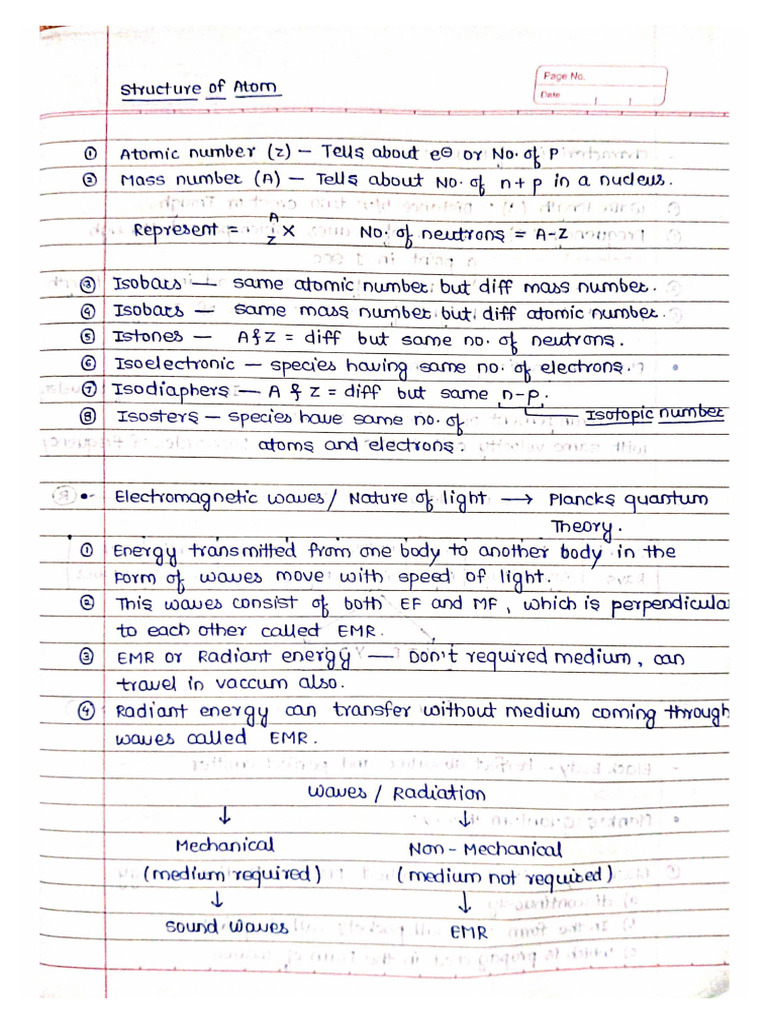 Page No.
Date
Structure of Atom
① Atomic number (z) – Tells about e⊖ or No. of P
② Mass number (A) – Tells about No. of n+p in a nucleus.
Represent = A/Z X No. of neutrons = A-Z
③ Isobars — same atomic number but diff mass number.
④ Isobars — same mass number but diff atomic number.
⑤ Istones — A & Z = diff but same no. of neutrons.
⑥ Isoelectronic – species having same no. of electrons.
⑦ Isodiaphers — A & Z = diff but same n-p.
⑧ Isosters – species have same no. of Isotopic number
atoms and electrons.
•- Electromagnetic waves / Nature of light → Plancks quantum
Theory.
① Energy transmitted from one body to another body in the
form of waves move with speed of light.
② This waves consist of both EF and MF, which is perpendicular
to each other called EMR.
③ EMR or Radiant energy — Don't required medium, can
travel in vaccum also.
④ Radiant energy can transfer without medium coming through
waves called EMR.
Waves / Radiation
↓ ↓
Mechanical Non-Mechanical
(medium required) (medium not required)
↓ ↓
Sound waves EMR